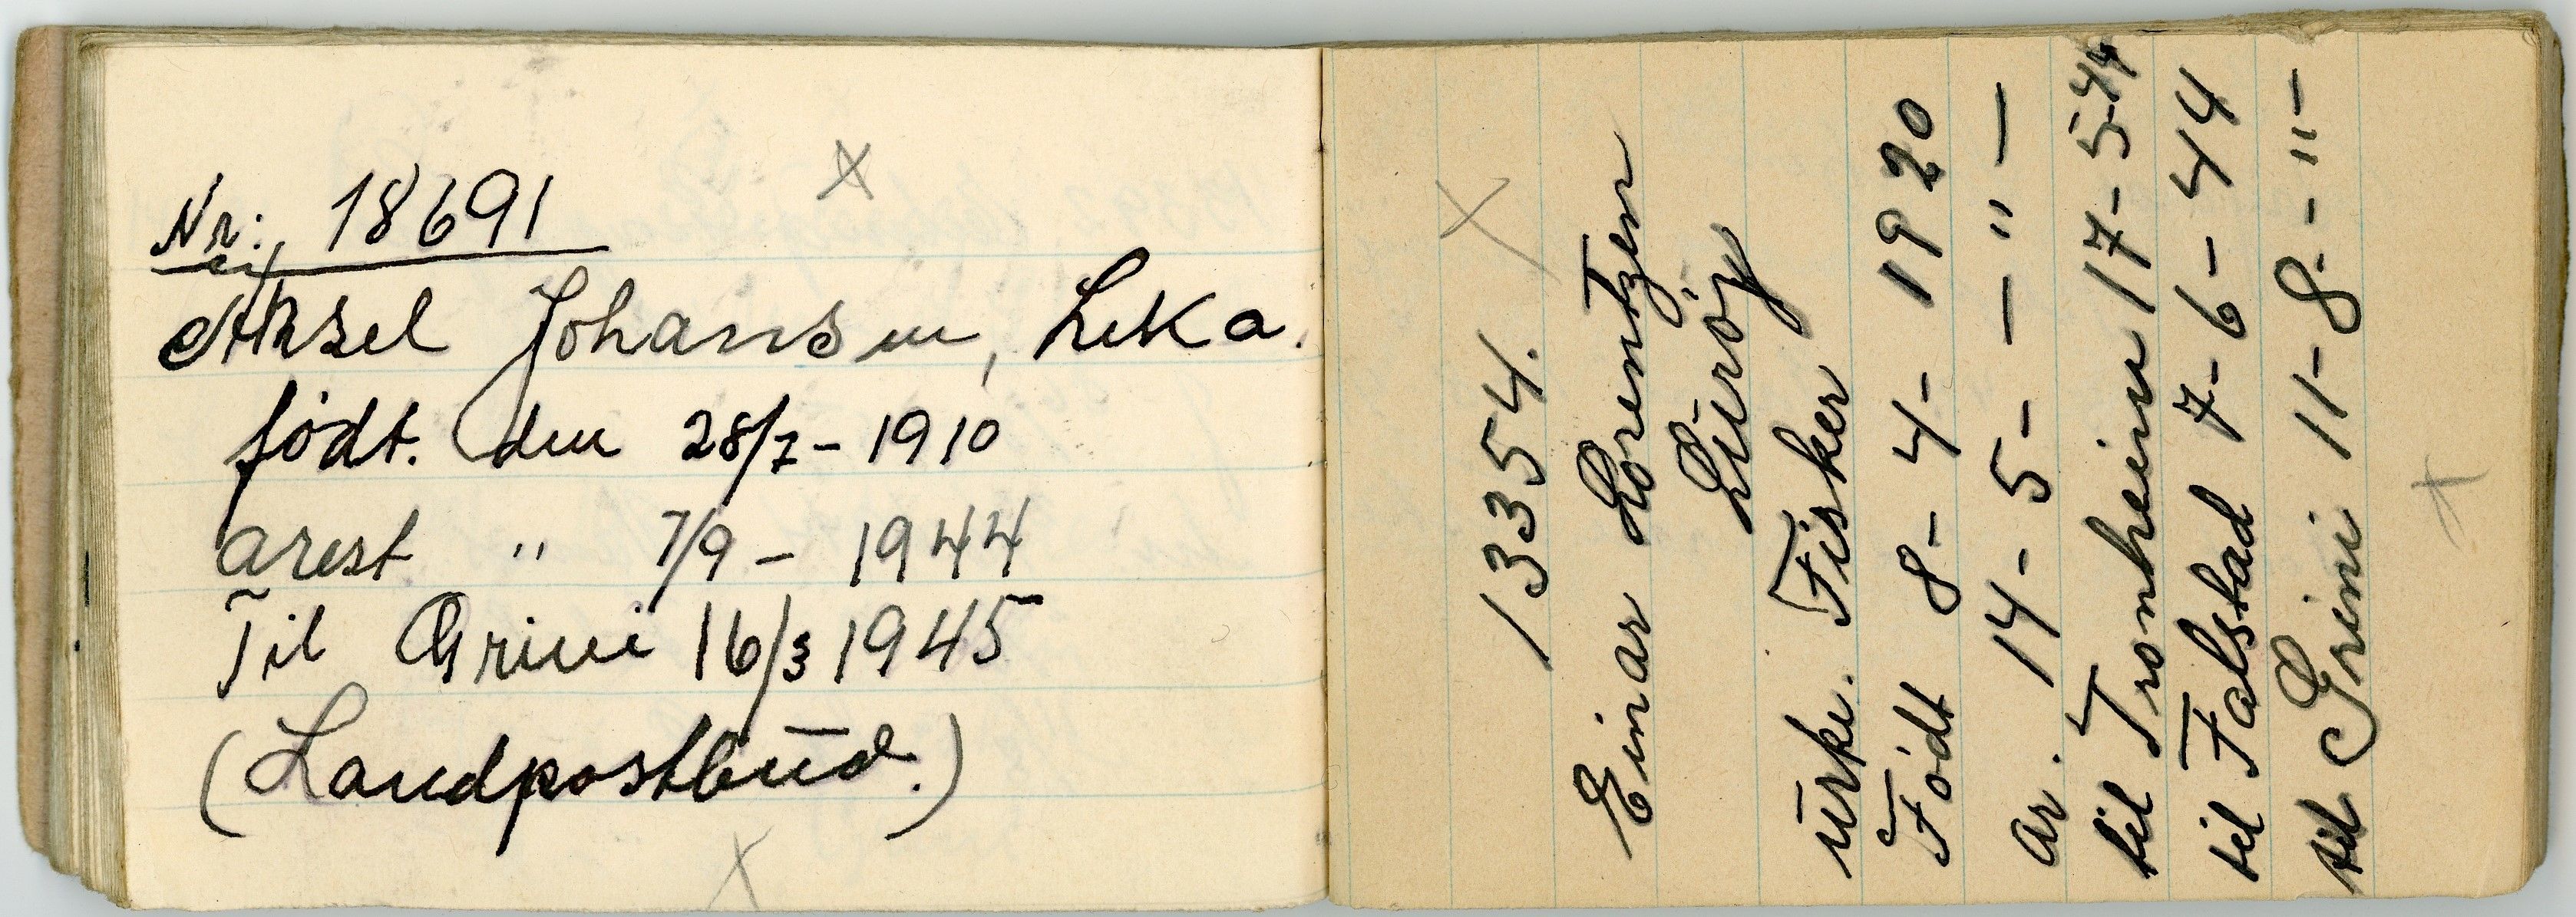 Nr: 18691
Aksel Johansen, Leka.
født. den 28/7 - 1910
arest " 7/9 - 1944
Til Grini 16/3 1945
(Landpostbūd.)
13354.
Einar Lorentzen
Lūröy
ūrke. Fisker
Födt 8-4-1920
ar. 14-5- — " —
til Tronheim 17-5-44
til Falstad 7-6-44
til Grini 11-8- - " -